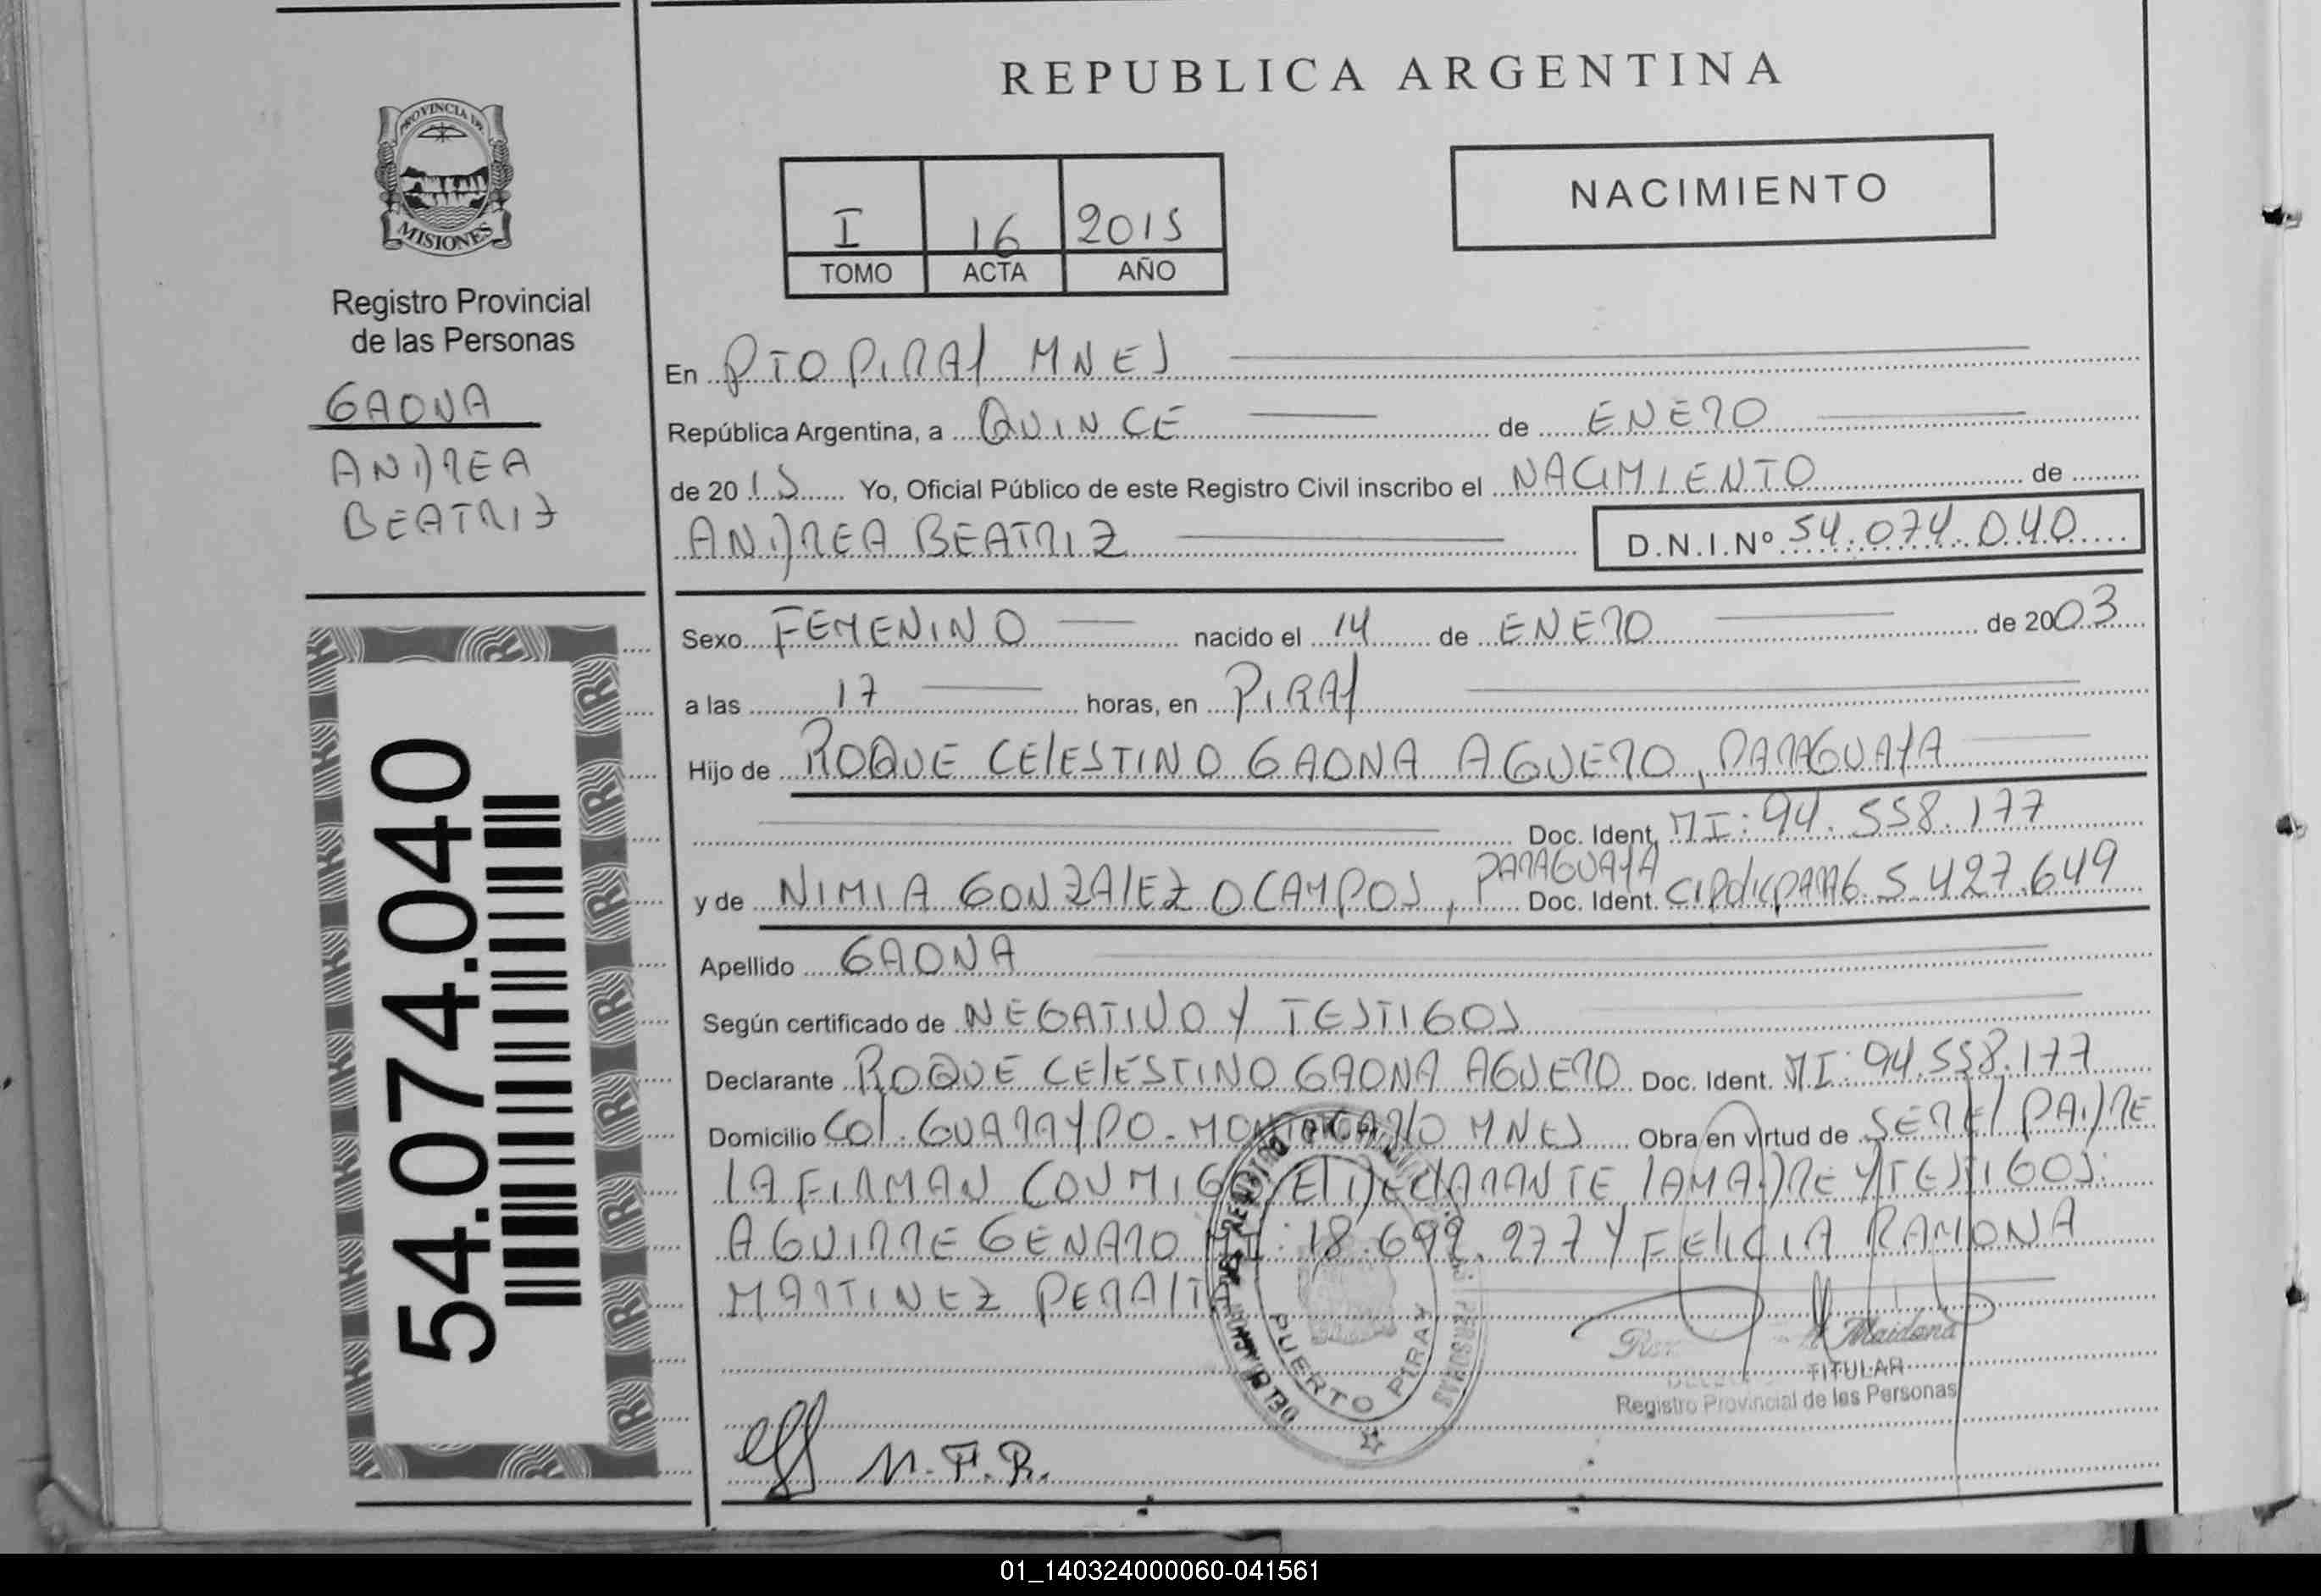 REPUBLICA ARGENTINA
PROVINCIA DE
MISIONES
Registro Provincial
de las Personas
GAONA
ANDREA
BEATRIZ
54.074.040
I 16 2015
TOMO ACTA AÑO
NACIMIENTO
En PTO PIRAY MNES
República Argentina, a QUINCE de ENERO
de 2015 Yo, Oficial Público de este Registro Civil inscribo el NACIMIENTO de
ANDREA BEATRIZ D.N.I.Nº 54.074.040
Sexo FEMENINO nacido el 14 de ENERO de 2003
a las 17 horas, en PIRAY
Hijo de ROQUE CELESTINO GAONA AGUERO, PARAGUAYA
Doc. Ident. MI: 94.558.177
y de NIMIA GONZALEZ OCAMPOS, PARAGUAYA Doc. Ident. 5.427.649
Apellido GAONA
Según certificado de NEGATIVO Y TESTIGOS
Declarante ROQUE CELESTINO GAONA AGUERO Doc. Ident. MI: 94.558.177
Domicilio COL. GUARAYPO - MONTECARLO MNES Obra en virtud de SER EL PADRE
LA FIRMAN CONMIGO EL DECLARANTE LA MADRE Y TESTIGOS:
AGUIRRE GENARO MI: 18.692.277 Y FELICIA RAMONA
MARTINEZ PERALTA
PUERTO PIRAY
Maidana
TITULAR
Registro Provincial de las Personas
M.F.R.
01_140324000060-041561